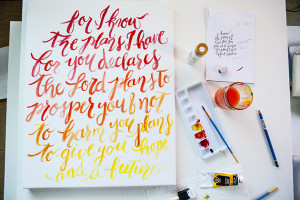 for I know
the plans I have
for you declares
the Lord plans to
prosper you & not
to harm you plans
to give you hope
and a future